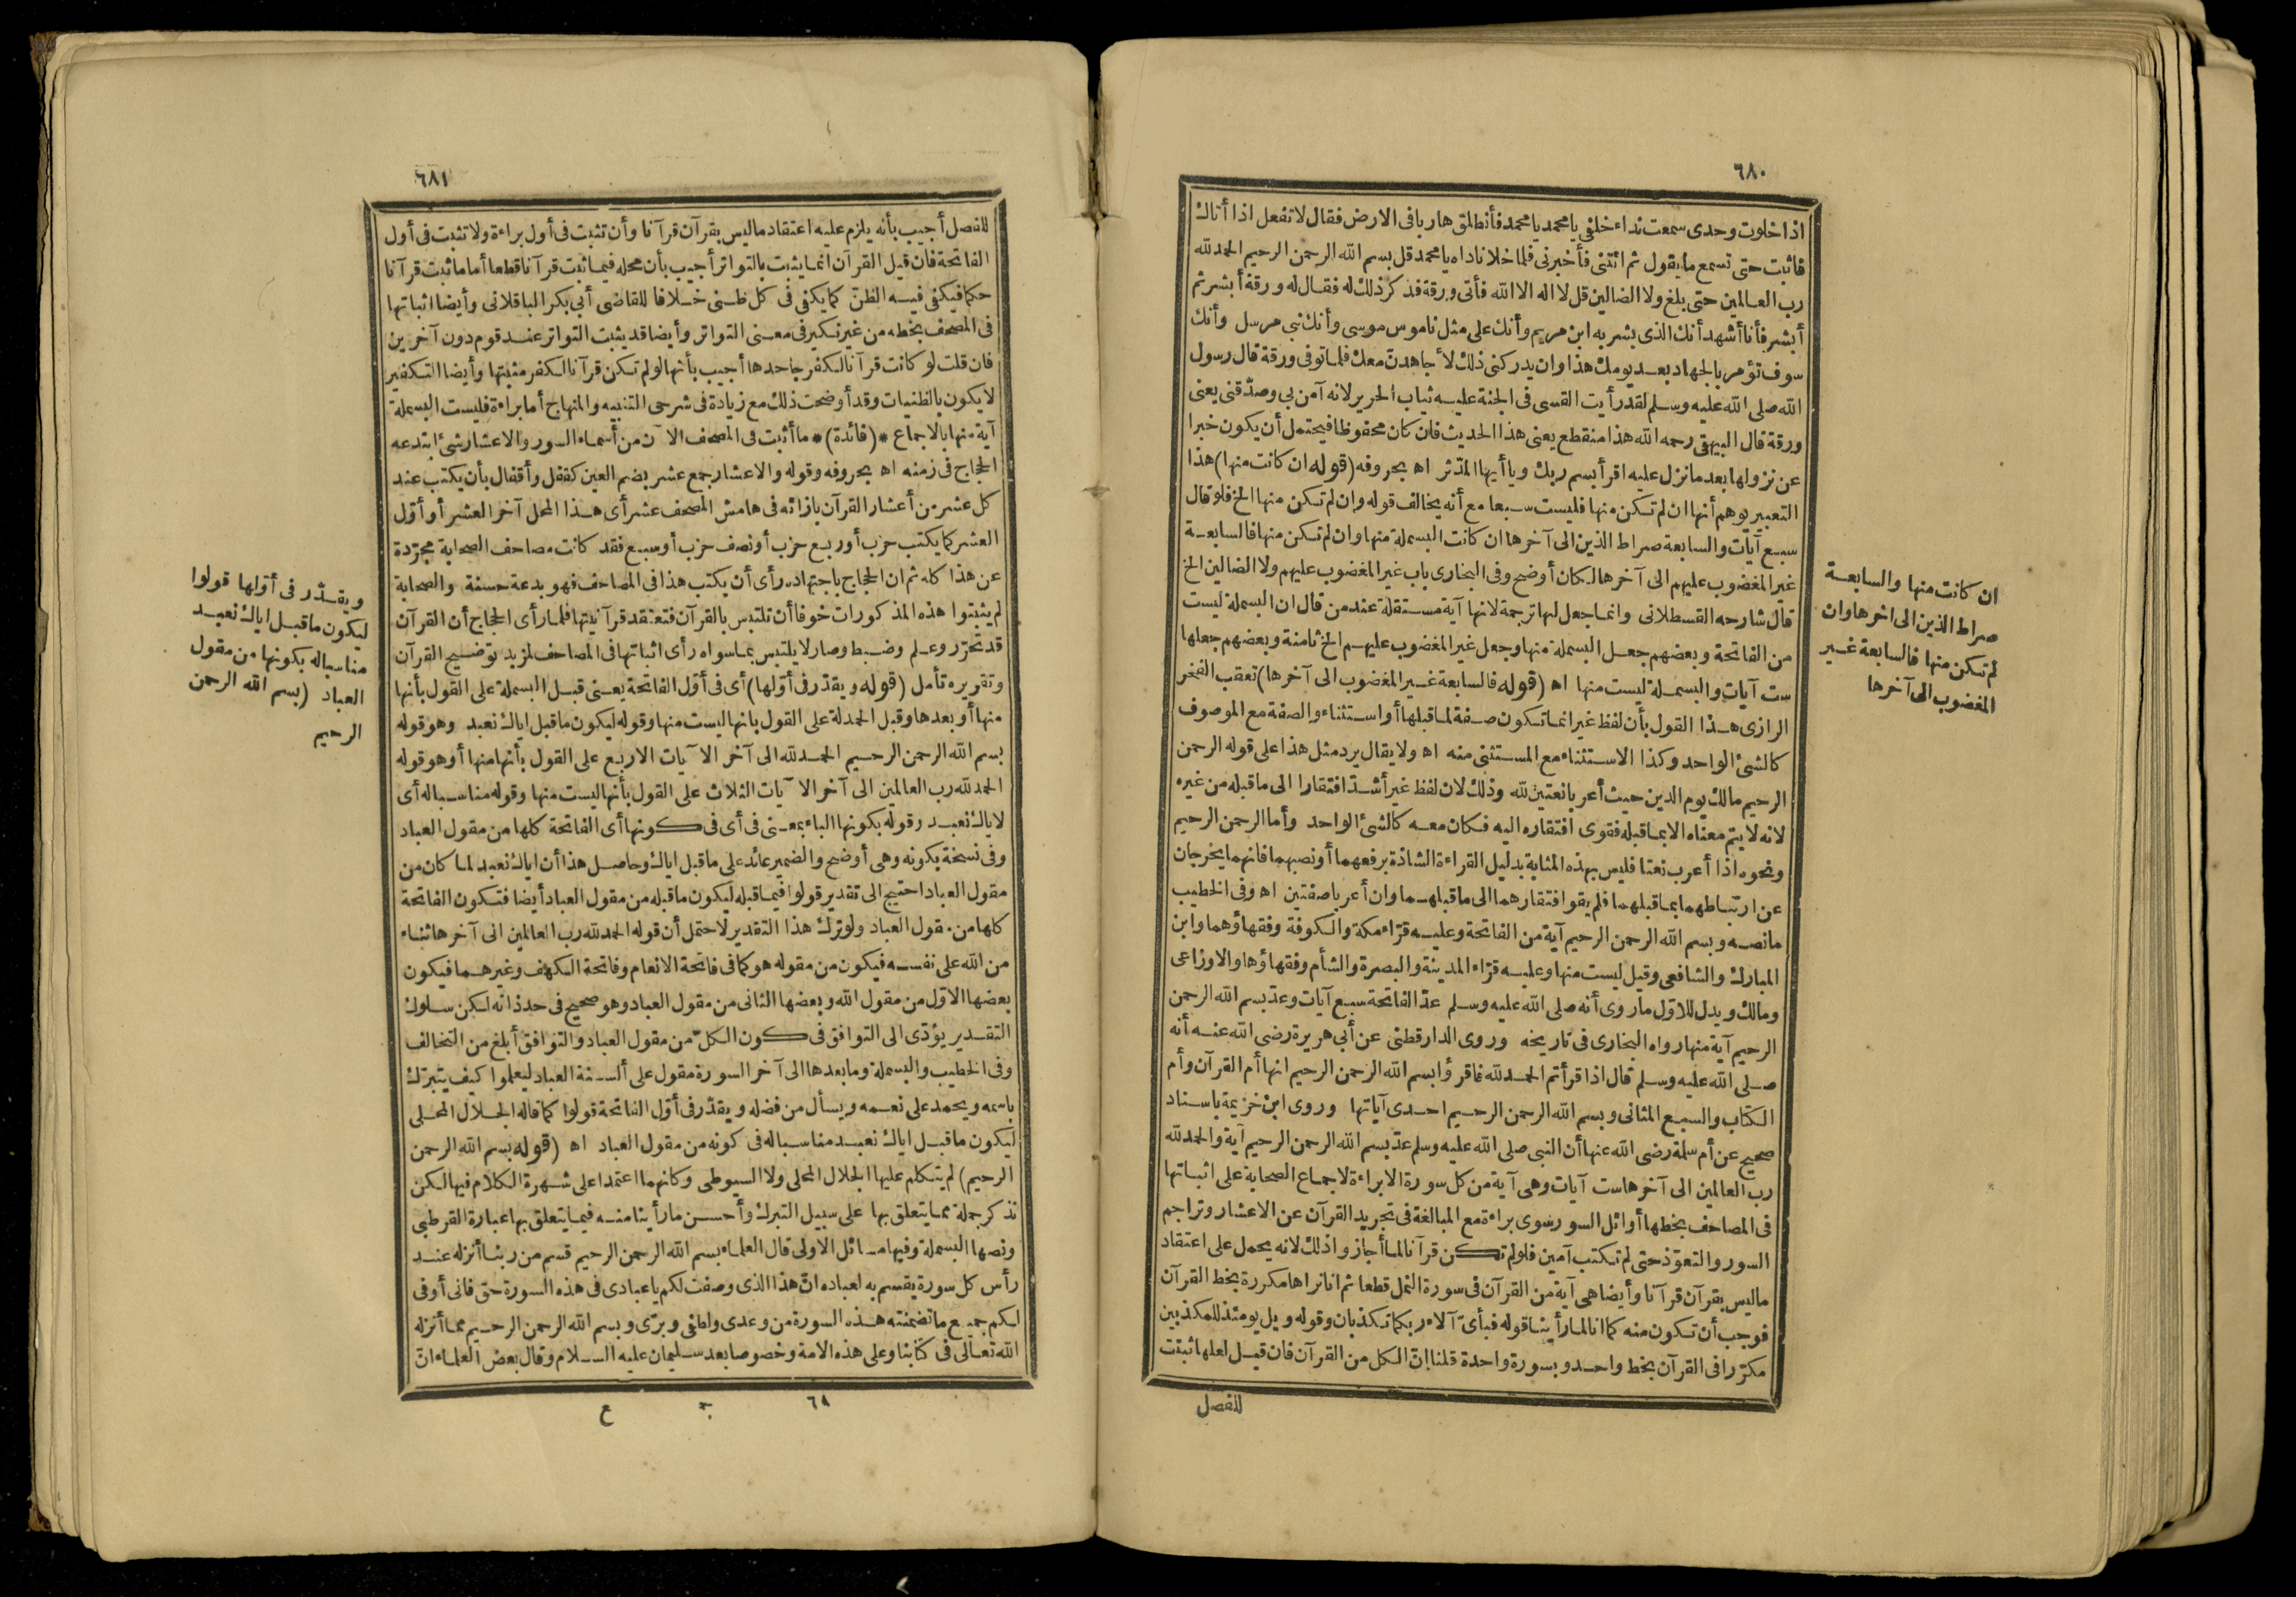 ٦٨٠
اذا خلوت وحدى سمعت نداء خلفى يا محمد يا محمد فأنطلق هاربا فى الارض فقال لا تفعل اذا أتاك
فاثبت حتى تسمع ما يقول ثم ائتنى فأخبرنى فلما خلا ناداه يا محمد قل بسم الله الرحمن الرحيم الحمد لله
رب العالمين حتى بلغ ولا الضالين قل لا اله الا الله فأتى ورقة فذكر ذلك له فقال له ورقة أبشر ثم
أبشر فأنا أشهد أنك الذى بشر به ابن مريم وأنك على مثل ناموس موسى وأنك نبى مرسل وأنك
سوف تؤمر بالجهاد بعد يومك هذا وان يدركنى ذلك لأجاهدنّ معك فلما توفى ورقة قال رسول
الله صلى الله عليه وسلم لقد رأيت القسى فى الجنة عليه ثياب الحرير لانه آمن بى وصدّقنى يعنى
ورقة قال البيهقى رحمه الله هذا منقطع يعنى هذا الحديث فان كان محفوظا فيحتمل أن يكون خبرا
عن نزولها بعد ما نزل عليه اقرأ بسم ربك ويا أيها المدّثر اه بحروفه (قوله ان كانت منها) هذا
التعبير يوهم أنها ان لم تكن منها فليست سبعا مع أنه يخالف قوله وان لم تكن منها الخ فلو قال
سبع آيات والسابعة صراط الذين الى آخرها ان كانت البسملة منها وان لم تكن منها فالسابعة
غير المغضوب عليهم الى آخرها لكان أوضح وفى البخارى باب غير المغضوب عليهم ولا الضالين الخ
قال شارحه القسطلانى وانما جعل لها ترجمة لانها آية مستقلة عند من قال ان البسملة ليست
من الفاتحة وبعضهم جعل البسملة منها وجعل غير المغضوب عليهم الخ ثامنة وبعضهم جعلها
ست آيات والبسملة ليست منها اه (قوله فالسابعة غير المغضوب الى آخرها) تعقب الفخر
الرازى هذا القول بأن لفظ غير انما تكون صفة لما قبلها أو استثناء والصفة مع الموصوف
كالشئ الواحد وكذا الاستثناء مع المستثنى منه اه ولا يقال يرد مثل هذا على قوله الرحمن
الرحيم مالك يوم الدين حيث أعربا نعتين لله وذلك لان لفظ غير أشدّ افتقارا الى ما قبله من غيره
لانه لا يتم معناه الا بما قبله فقوى افتقاره اليه فكان معه كالشئ الواحد وأما الرحمن الرحيم
ونحوه اذا أعرب نعتا فليس بهذه المثابة بدليل القراءة الشاذة برفعهما أو نصبهما فانهما يخرجان
عن ارتباطهما بما قبلهما فلم يقو افتقارهما الى ما قبلهما وان أعربا صفتين اه وفى الخطيب
ما نصه وبسم الله الرحمن الرحيم آية من الفاتحة وعليه قرّاء مكة والكوفة وفقهاؤهما وابن
المبارك والشافعى وقيل ليست منها وعليه قرّاء المدينة والبصرة والشأم وفقهاؤها والاوزاعى
ومالك ويدل للاوّل ما روى أنه صلى الله عليه وسلم عدّ الفاتحة سبع آيات وعدّ بسم الله الرحمن
الرحيم آية منها رواه البخارى فى تاريخه وروى الدارقطنى عن أبى هريرة رضى الله عنه أنه
صلى الله عليه وسلم قال اذا قرأتم الحمد لله فاقرؤا بسم الله الرحمن الرحيم انها أم القرآن وأم
الكتاب والسبع المثانى وبسم الله الرحمن الرحيم احدى آياتها وروى ابن خزيمة باسناد
صحيح عن أم سلمة رضى الله عنها أن النبى صلى الله عليه وسلم عدّ بسم الله الرحمن الرحيم آية والحمد لله
رب العالمين الى آخرها ست آيات وهى آية من كل سورة الا براءة لاجماع الصحابة على اثباتها
فى المصاحف بخطها أوائل السور سوى براءة مع المبالغة فى تجريد القرآن عن الاعشار وتراجم
السور والتعوّذ حتى لم تكتب آمين فلو لم تكن قرآنا لما أجازوا ذلك لانه يحمل على اعتقاد
ما ليس بقرآن قرآنا وأيضا هى آية من القرآن فى سورة النمل قطعا ثم انا نراها مكررة بخط القرآن
فوجب أن تكون منه كما انا لما رأينا قوله فبأىّ آلاء ربكما تكذبان وقوله ويل يومئذ للمكذبين
مكرّرا فى القرآن بخط واحد وبسورة واحدة قلنا انّ الكل من القرآن فان قيل لعلها ثبتت
للفصل
ان كانت منها والسابعة
صراط الذين الى اخرها وان
لم تكن منها فالسابعة غير
المغضوب الى آخرها
٦٨١
للفصل أجيب بأنه يلزم عليه اعتقاد ما ليس بقرآن قرآنا وأن تثبت فى أول براءة ولا تثبت فى أول
الفاتحة فان قيل القرآن انما يثبت بالتواتر أجيب بأن محله فيما ثبت قرآنا قطعا أما ما ثبت قرآنا
حكما فيكفى فيه الظنّ كما يكفى فى كل ظنى خلافا للقاضى أبى بكر الباقلانى وأيضا اثباتها
فى المصحف بخطه من غير نكير فى معنى التواتر وأيضا قد يثبت التواتر عند قوم دون آخرين
فان قلت لو كانت قرآنا لكفر جاحدها أجيب بأنها لو لم تكن قرآنا لكفر مثبتها وأيضا التكفير
لا يكون بالظنيات وقد أوضحت ذلك مع زيادة فى شرحى التنبيه والمنهاج أما براءة فليست البسملة
آية منها بالاجماع *(فائدة)* ما أثبت فى المصحف الآن من أسماء السور والاعشار شئ ابتدعه
الحجاج فى زمنه اه بحروفه وقوله والاعشار جمع عشر بضم العين كقفل وأقفال بأن يكتب عند
كل عشر من أعشار القرآن بازائه فى هامش المصحف عشر أى هذا المحل آخر العشر أو أوّل
العشر كما يكتب حزب أو ربع حزب أو نصف حزب أو سبع فقد كانت مصاحف الصحابة مجرّدة
عن هذا كله ثم ان الحجاج باجتهاده رأى أن يكتب هذا فى المصاحف فهو بدعة حسنة والصحابة
لم يثبتوا هذه المذكورات خوفا أن تلتبس بالقرآن فتعتقد قرآنيتها فلما رأى الحجاج أن القرآن
قد تحرّر وعلم وضبط وصار لا يلتبس بما سواه رأى اثباتها فى المصاحف لمزيد توضيح القرآن
وتقريره تأمل (قوله ويقدّر فى أوّلها) أى فى أوّل الفاتحة يعنى قبل البسملة على القول بأنها
منها أو بعدها وقبل الحمدلة على القول بانها ليست منها وقوله ليكون ما قبل اياك نعبد وهو قوله
بسم الله الرحمن الرحيم الحمد لله الى آخر الآيات الاربع على القول بأنها منها أو هو قوله
الحمد لله رب العالمين الى آخر الآيات الثلاث على القول بأنها ليست منها وقوله مناسبا له أى
لاياك نعبد وقوله بكونها الباء بمعنى فى أى فى كونها أى الفاتحة كلها من مقول العباد
وفى نسخة بكونه وهى أوضح والضمير عائد على ما قبل اياك وحاصل هذا أن اياك نعبد لما كان من
مقول العباد احتيج الى تقدير قولوا فيما قبله ليكون ما قبله من مقول العباد أيضا فتكون الفاتحة
كلها من مقول العباد ولو ترك هذا التقدير لاحتمل أن قوله الحمد لله رب العالمين الى آخرها ثناء
من الله على نفسه فيكون من مقوله هو كما فى فاتحة الانعام وفاتحة الكهف وغيرهما فيكون
بعضها الاوّل من مقول الله وبعضها الثانى من مقول العباد وهو صحيح فى حد ذاته لكن سلوك
التقدير يؤدّى الى التوافق فى كون الكلّ من مقول العباد والتوافق أبلغ من التخالف
وفى الخطيب والبسملة وما بعدها الى آخر السورة مقول على ألسنة العباد ليعلموا كيف يتبرّك
باسمه ويحمد على نعمه ويسأل من فضله ويقدّر فى أوّل الفاتحة قولوا كما قاله الجلال المحلى
ليكون ما قبل اياك نعبد مناسبا له فى كونه من مقول العباد اه (قوله بسم الله الرحمن
الرحيم) لم يتكلم عليها الجلال المحلى ولا السيوطى وكانهما اعتمدا على شهرة الكلام فيها لكن
نذكر جملة مما يتعلق بها على سبيل التبرك وأحسن ما رأينا منه فيما يتعلق بها عبارة القرطبى
ونصها البسملة وفيها مسائل الاولى قال العلماء بسم الله الرحمن الرحيم قسم من ربنا أنزله عند
رأس كل سورة يقسم به لعباده انّ هذا الذى وصفت لكم يا عبادى فى هذه السورة حق فانى أوفى
لكم جميع ما تضمنته هذه السورة من وعدى ولطفى وبرّى وبسم الله الرحمن الرحيم مما أنزله
الله تعالى فى كتابنا وعلى هذه الامة وخصوصا بعد سليمان عليه السلام وقال بعض العلماء انّ
ويقدّر فى أوّلها قولوا
ليكون ما قبل اياك نعبد
مناسبا له بكونها من مقول
العباد (بسم الله الرحمن
الرحيم
ع